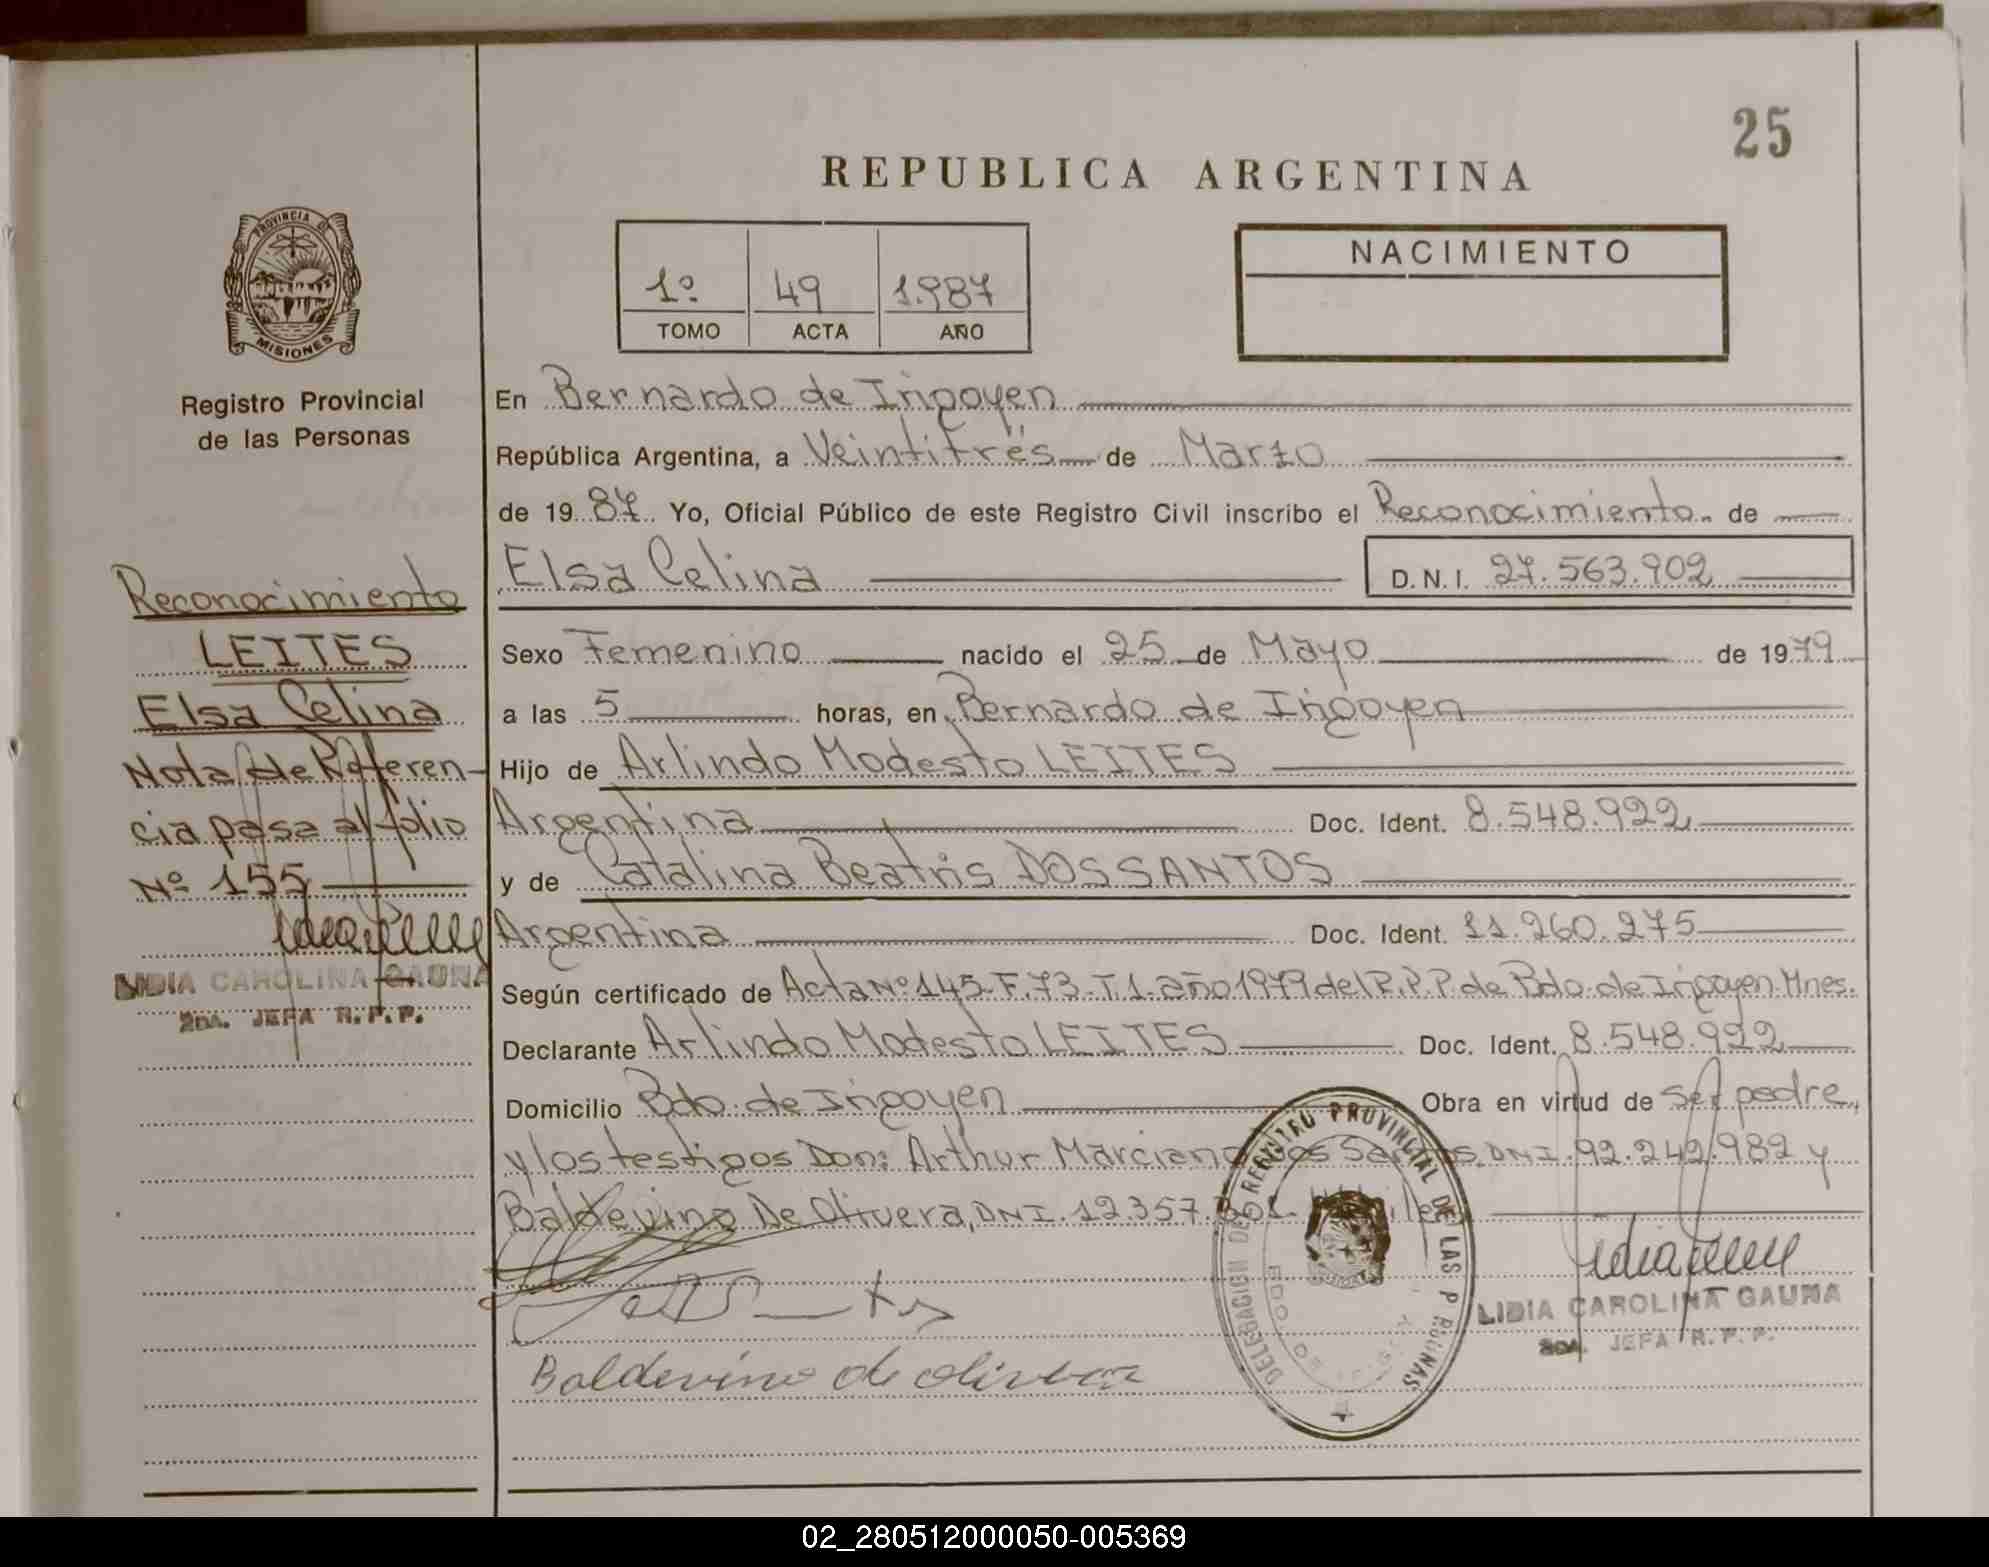 25
REPUBLICA ARGENTINA
PROVINCIA DE
MISIONES
Registro Provincial
de las Personas
1º 49 1.987
TOMO ACTA AÑO
NACIMIENTO
En Bernardo de Irigoyen
República Argentina, a Veintitrés de Marzo
de 19 87 Yo, Oficial Público de este Registro Civil inscribo el Reconocimiento de
Elsa Celina D.N.I. 27.563.902
Sexo Femenino nacido el 25 de Mayo de 1979
a las 5 horas, en Bernardo de Irigoyen
Hijo de Arlindo Modesto LEITES
Argentina Doc. Ident. 8.548.922
y de Catalina Beatris DOS SANTOS
Argentina Doc. Ident. 11.260.275
Según certificado de Acta Nº 145-F.73-T1-año 1979 del R.P.P de Bdo. de Irigoyen Mnes.
Declarante Arlindo Modesto LEITES Doc. Ident. 8.548.922
Domicilio Bdo. de Irigoyen Obra en virtud de ser padre,
y los testigos Don: Arthur Marciano dos Santos, DNI. 92.242.982 y
Baldevino De Olivera, DNI. 12.357.301.
Baldevino de olivera
LIDIA CAROLINA GAUNA
2DA. JEFA R.P.P.
DELEGACION DE REGISTRO PROVINCIAL DE LAS PERSONAS
BDO DE
Reconocimiento
LEITES
Elsa Celina
Nota de Referen-
cia pasa al folio
Nº 155
LIDIA CAROLINA GAUNA
2DA. JEFA R.P.P.
02_280512000050-005369